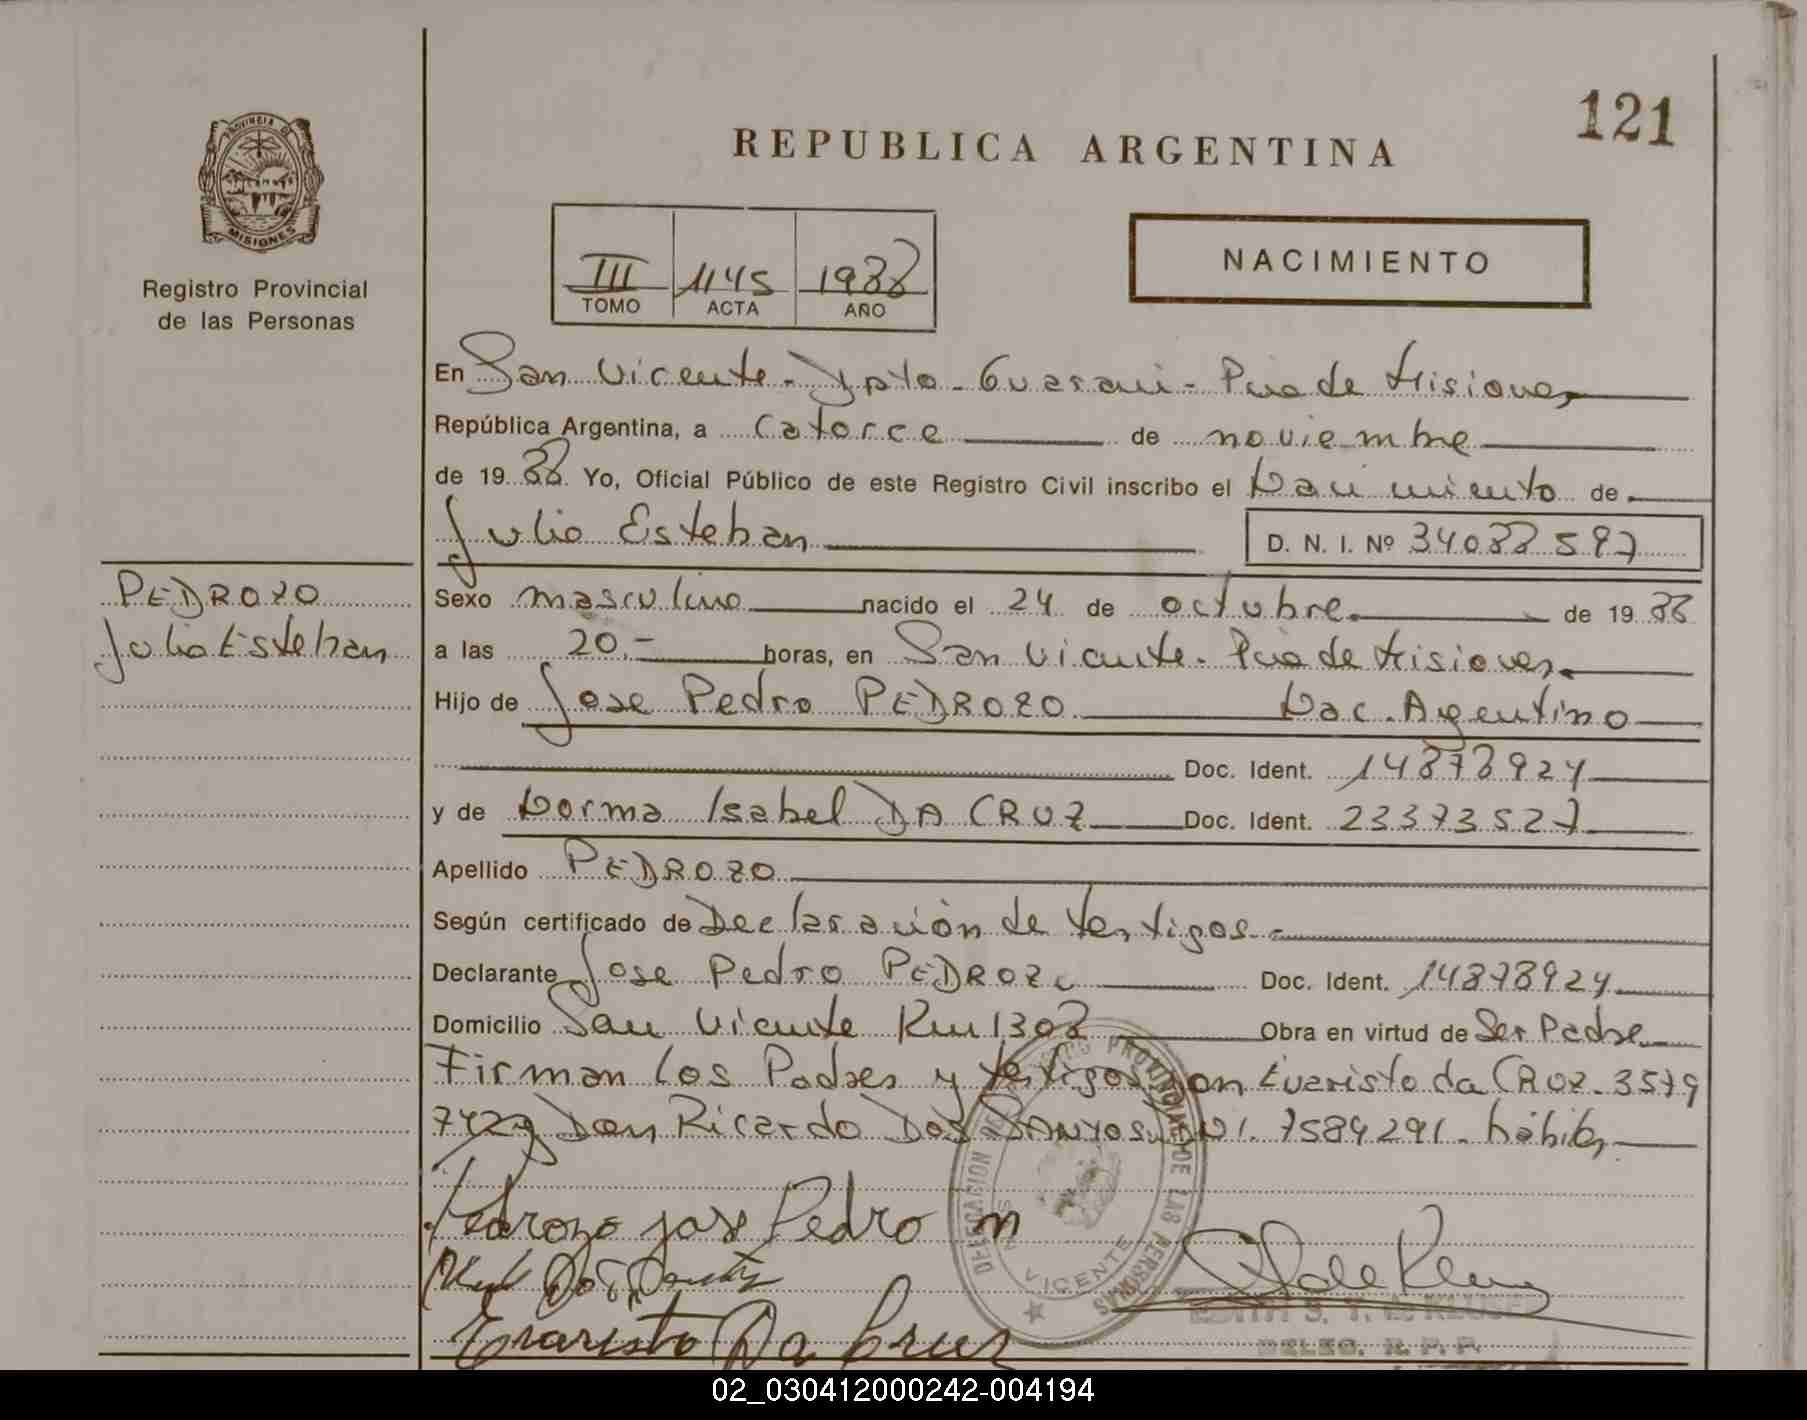 121
PROVINCIA DE
MISIONES
REPUBLICA ARGENTINA
Registro Provincial
de las Personas
III 1145 1988
TOMO ACTA AÑO
NACIMIENTO
En San Vicente - Dpto - Guarani - Pcia de Misiones
República Argentina, a catorce de noviembre
de 19 88 Yo, Oficial Público de este Registro Civil inscribo el Nacimiento de
Julio Esteban D. N. I. Nº 34088597
PEDROZO
Julio Esteban
Sexo masculino nacido el 24 de octubre de 19 88
a las 20.- horas, en San Vicente. Pcia de Misiones
Hijo de Jose Pedro PEDROZO Nac. Argentino
Doc. Ident. 14878924
y de Norma Isabel DA CRUZ Doc. Ident. 23373527
Apellido PEDROZO
Según certificado de Declaración de testigos.-
Declarante Jose Pedro PEDROZO Doc. Ident. 14878924
Domicilio San Vicente Km 1308 Obra en virtud de Ser Padre
Firman los Padres y testigos Don Evaristo da CRUZ. 3579
7429 Don Ricardo DOS SANTOS DNI. 7584291. hábiles
Pedrozo jose Pedro
Dos Santos
Evaristo Da Cruz
DELEGACION REGISTRO PROVINCIAL DE LAS PERSONAS
VICENTE
DELEG. R. P. P.
02_030412000242-004194